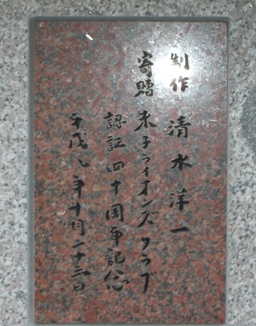 制作 清水洋一
寄贈 米子ライオンズクラブ
認証四十周年記念
平成七年十月二十三日